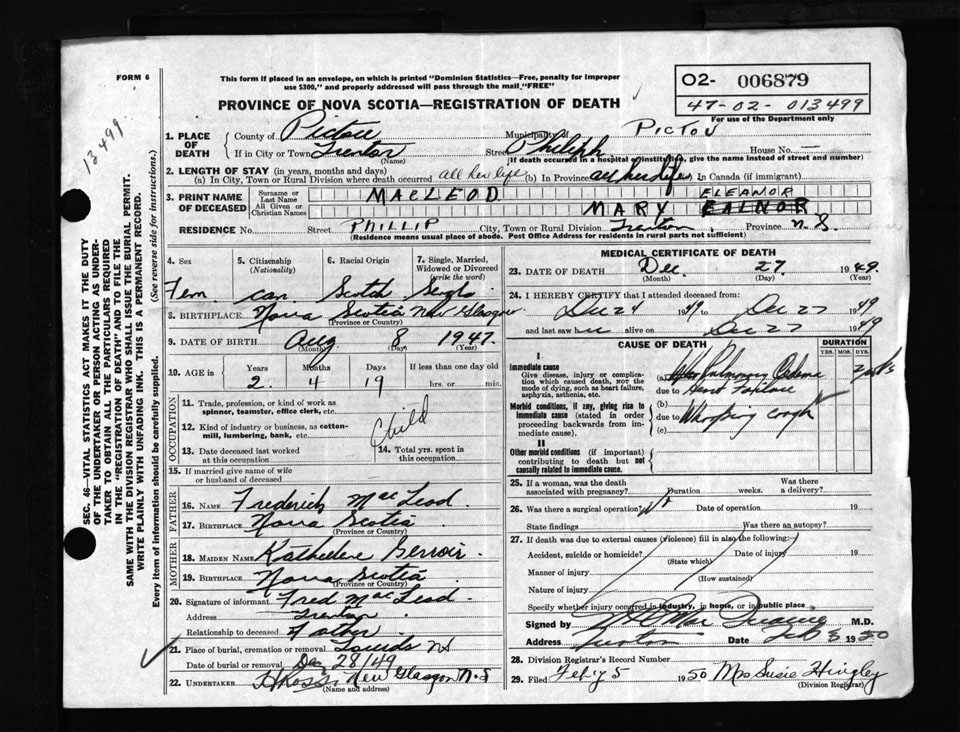 FORM 6
This form if placed in an envelope, on which is printed "Dominion Statistics—Free, penalty for improper
use $300," and properly addressed will pass through the mail "FREE"
O2- 006879
47-02-013499
For use of the Department only
PROVINCE OF NOVA SCOTIA—REGISTRATION OF DEATH
13499
1. PLACE OF DEATH
County of Pictou Municipality of PICTOU
If in City or Town Trenton Street Philiph House No. —
(Name) (If death occurred in a hospital or institution, give the name instead of street and number)
2. LENGTH OF STAY (in years, months and days)
(a) In City, Town or Rural Division where death occurred all her life (b) In Province all her life In Canada (if immigrant)
3. PRINT NAME OF DECEASED
Surname or Last Name MACLEOD ELEANOR
All Given or Christian Names MARY EALNOR
RESIDENCE No. Street PHILLIP City, Town or Rural Division Trenton Province N.S.
(Residence means usual place of abode. Post Office Address for residents in rural parts not sufficient)
4. Sex 5. Citizenship (Nationality) 6. Racial Origin 7. Single, Married, Widowed or Divorced (write the word)
Fem. can. Scotch Single
8. BIRTHPLACE Nova Scotia New Glasgow
(Province or Country)
9. DATE OF BIRTH Aug 8 1947
(Month) (Day) (Year)
10. AGE in Years Months Days If less than one day old
2 4 19 hrs. or min.
OCCUPATION
11. Trade, profession, or kind of work as spinner, teamster, office clerk, etc.
12. Kind of industry or business, as cotton-mill, lumbering, bank, etc.
Child
13. Date deceased last worked at this occupation 14. Total yrs. spent in this occupation
15. If married give name of wife or husband of deceased
FATHER
16. NAME Frederick Mac Leod
17. BIRTHPLACE Nova Scotia
(Province or Country)
MOTHER
18. MAIDEN NAME Kathleene
19. BIRTHPLACE Nova Scotia
(Province or Country)
20. Signature of informant Fred Mac Leod
Address Trenton
Relationship to deceased Father
21. Place of burial, cremation or removal NS
Date of burial or removal Dec 28/49
22. UNDERTAKER New Glasgow N.S
(Name and address)
MEDICAL CERTIFICATE OF DEATH
23. DATE OF DEATH Dec. 27 1949
(Month) (Day) (Year)
24. I HEREBY CERTIFY that I attended deceased from:
Dec 24 1949 to Dec 27 1949
and last saw alive on Dec 27 1949
CAUSE OF DEATH DURATION
YRS. MOS. DYS.
I
Immediate cause
Give disease, injury or complication which caused death, NOT the mode of dying, such as heart failure, asphyxia, asthenia, etc.
(a) Pulmonary Edema
due to Heart Failure
Morbid conditions, if any, giving rise to immediate cause (stated in order proceeding backwards from immediate cause).
(b)
due to Whooping Cough
(c)
II
Other morbid conditions (if important) contributing to death but not causally related to immediate cause.
25. If a woman, was the death associated with pregnancy? Duration weeks. Was there a delivery?
26. Was there a surgical operation? Date of operation 19
State findings Was there an autopsy?
27. If death was due to external causes (violence) fill in also the following:-
Accident, suicide or homicide? Date of injury 19
(State which)
Manner of injury
(How sustained)
Nature of injury
Specify whether injury occurred in industry, in home, or in public place
Signed by M.D.
Address Trenton Date Feb 3 1950
28. Division Registrar's Record Number
29. Filed Feby 5 1950 Mrs Susie Hingley
(Division Registrar)
SEC. 46—VITAL STATISTICS ACT MAKES IT THE DUTY
OF THE UNDERTAKER OR PERSON ACTING AS UNDER-
TAKER TO OBTAIN ALL THE PARTICULARS REQUIRED
IN THE "REGISTRATION OF DEATH" AND TO FILE THE
SAME WITH THE DIVISION REGISTRAR WHO SHALL ISSUE THE BURIAL PERMIT.
WRITE PLAINLY WITH UNFADING INK. THIS IS A PERMANENT RECORD.
Every item of information should be carefully supplied. (See reverse side for instructions.)